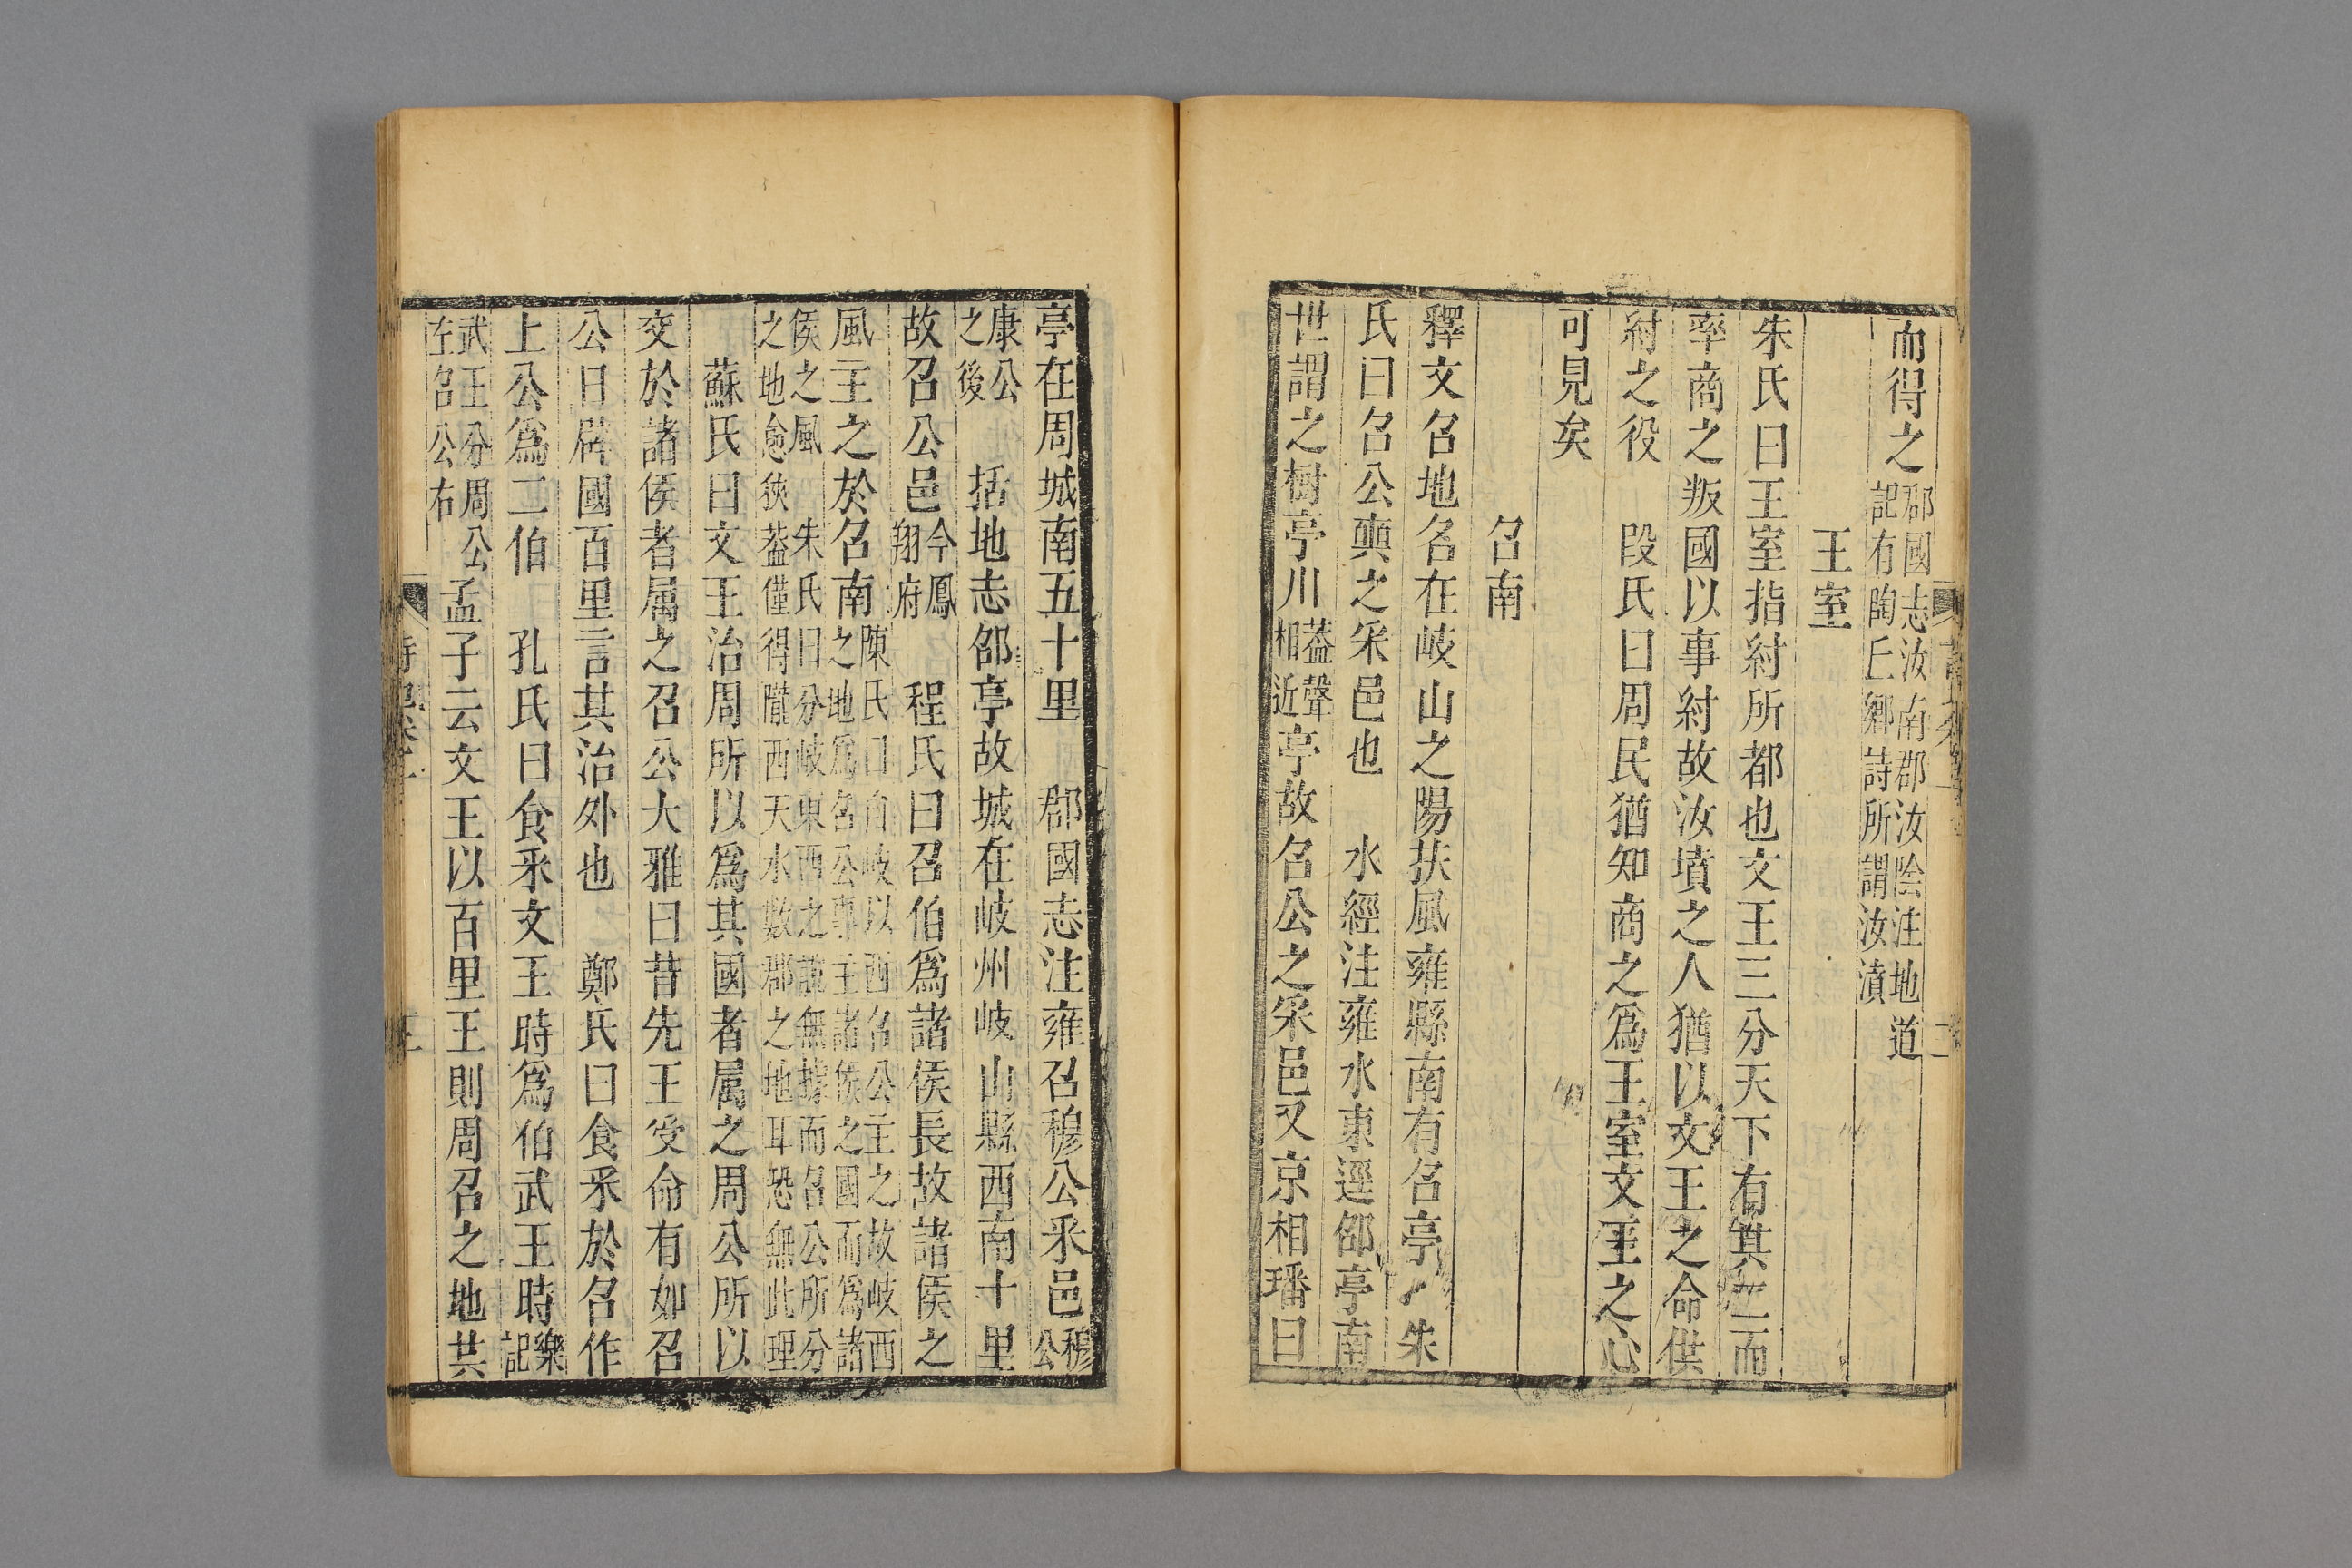 而得之郡國志汝南郡汝陰注地道
記有陶丘鄉詩所謂汝濆
王室
朱氏曰王室指紂所都也文王三分天下有其二而
率商之叛國以事紂故汝墳之人猶以文王之命供
紂之役　段氏曰周民猶知商之爲王室文王之心
可見矣
召南
釋文召地名在岐山之陽扶風雍縣南有召亭　朱
氏曰召公奭之采邑也　水經注雍水東逕邵亭南
世謂之樹亭川蓋聲相近亭故召公之采邑又京相璠曰
亭在周城南五十里　郡國志注雍召穆公采邑穆公
康公之後　括地志邵亭故城在岐州岐山縣西南十里
故召公邑今鳳翔府　程氏曰召伯爲諸侯長故諸侯之
風主之於召南陳氏曰自岐以西召公主之故岐西
之地爲召公專主諸侯之國而爲諸
侯之風　朱氏曰分岐東西之說無據而召公所分
之地愈狹蓋僅得隴西天水數郡之地耳恐無此理
蘇氏曰文王治周所以爲其國者属之周公所以
交於諸侯者属之召公大雅曰昔先王受命有如召
公日辟國百里言其治外也　鄭氏曰食采於召作
上公爲二伯　孔氏曰食采文王時爲伯武王時樂記
武王分周公左召公右　孟子云文王以百里王則周召之地共